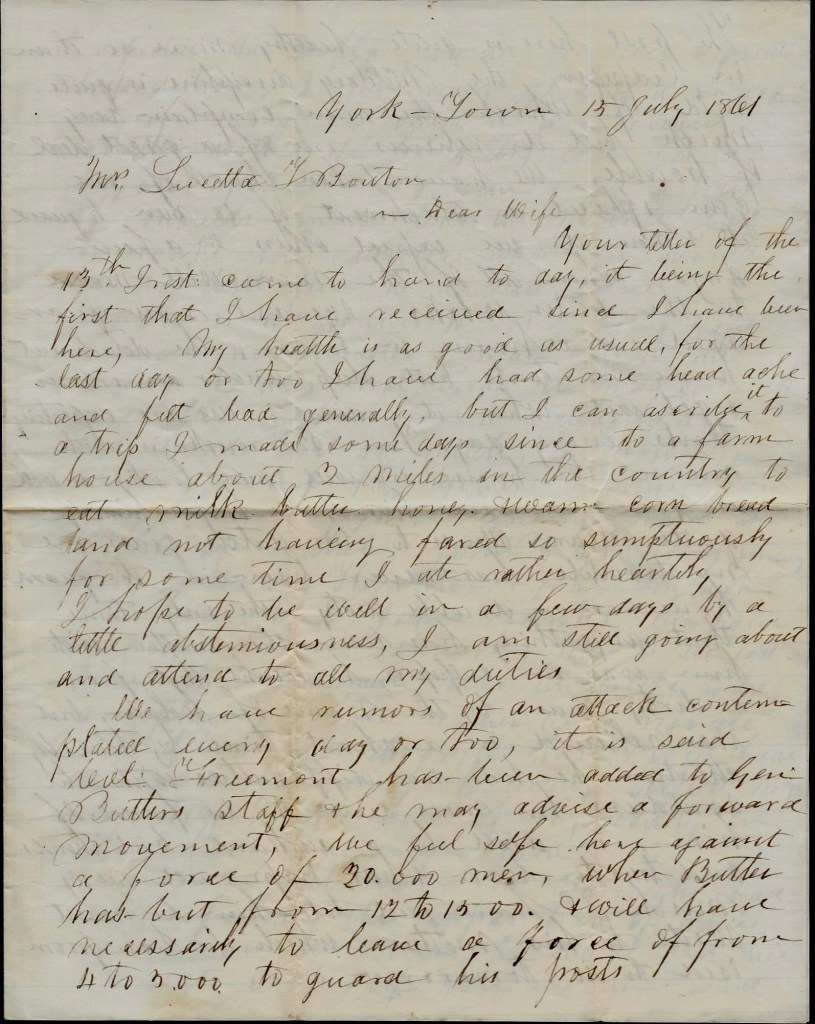 York-Town 15 July 1861
Mrs. Lucetta Bouton
Dear Wife
Your letter of the
13th Inst. came to hand to day, it being the
first that I have received since I have been
here, My health is as good as usual, for the
last day or too I have had some head ache
and felt bad generally, but I can it to
a trip I made some days since to a farm
house about 2 miles in the country to
eat milk butter honey & warm corn bread
and not having fared so sumptuously
for some time I ate rather heartily,
I hope to be well in a few days by a
little abstemiousness, I am still going about
and attend to all my duties
We have rumors of an attack contem
plated every day or too, it is said
Freemont has been added to Gen
Butlers staff & he may advise a forward
movement, We feel safe here against
a force of 20.000 men, when Butler
has but from 12 to 1500. & will have
necessarily to leave a force of from
4 to 5.000. to guard his posts